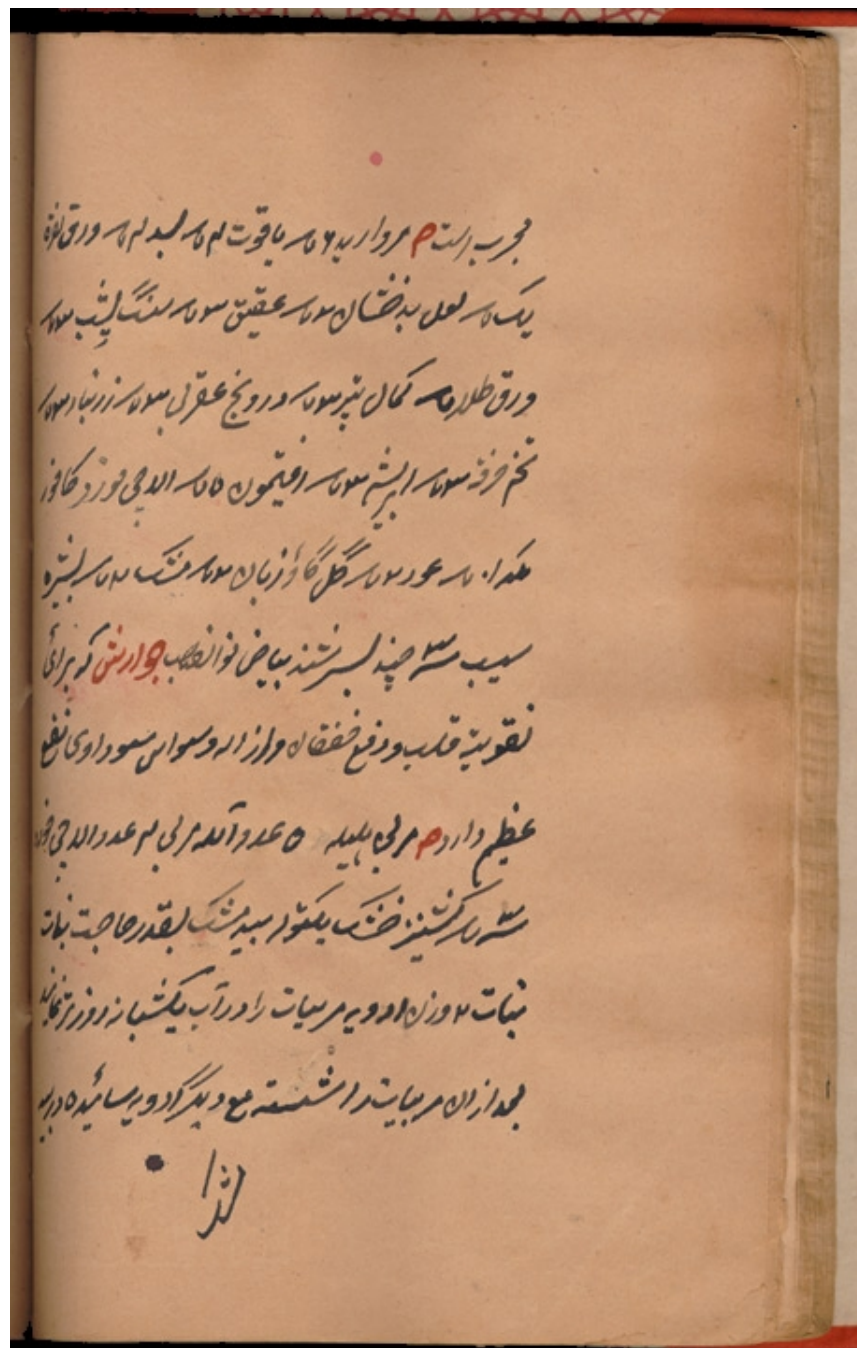 مجرب است ص مروارید ۶ ماسه یاقوت ۴ ماسه بسد ۴ ماسه ورق نقره
یک ماسه لعل بدخشان ۳ ماسه عقیق ۳ ماسه سنگ یشب ۳ ماسه
ورق طلا ماسه ۳ ماسه درونج عقربی ۳ ماسه زرنباد ۳ ماسه
تخم خرفه ۳ ماسه ابریشم ۳ ماسه افتیمون ۵ ماسه الاچی خورد کافور
ماسه عود ۳ ماسه گل گاؤزبان ۳ ماسه مشک ۲ ماسه بشیره
سیب سه چند بسرشند بیاض جوارش که برائ
تقویة قلب و دفع خفقان و ازاله وسواس سوداوی نفع
عظیم دارد ص مربی هلیله ۵ عدد آمله مربی ۴ عدد الاچی خورد
سه ماسه کشنیز خشک یکتوله بیدمشک بقدر حاجت نبات
نبات ۲ وزن ادویه مربیات را در آب یکشبانه روز تر نمایند
بعد ازان مربیات را شسته مع دیگر ادویه سائیده در بید